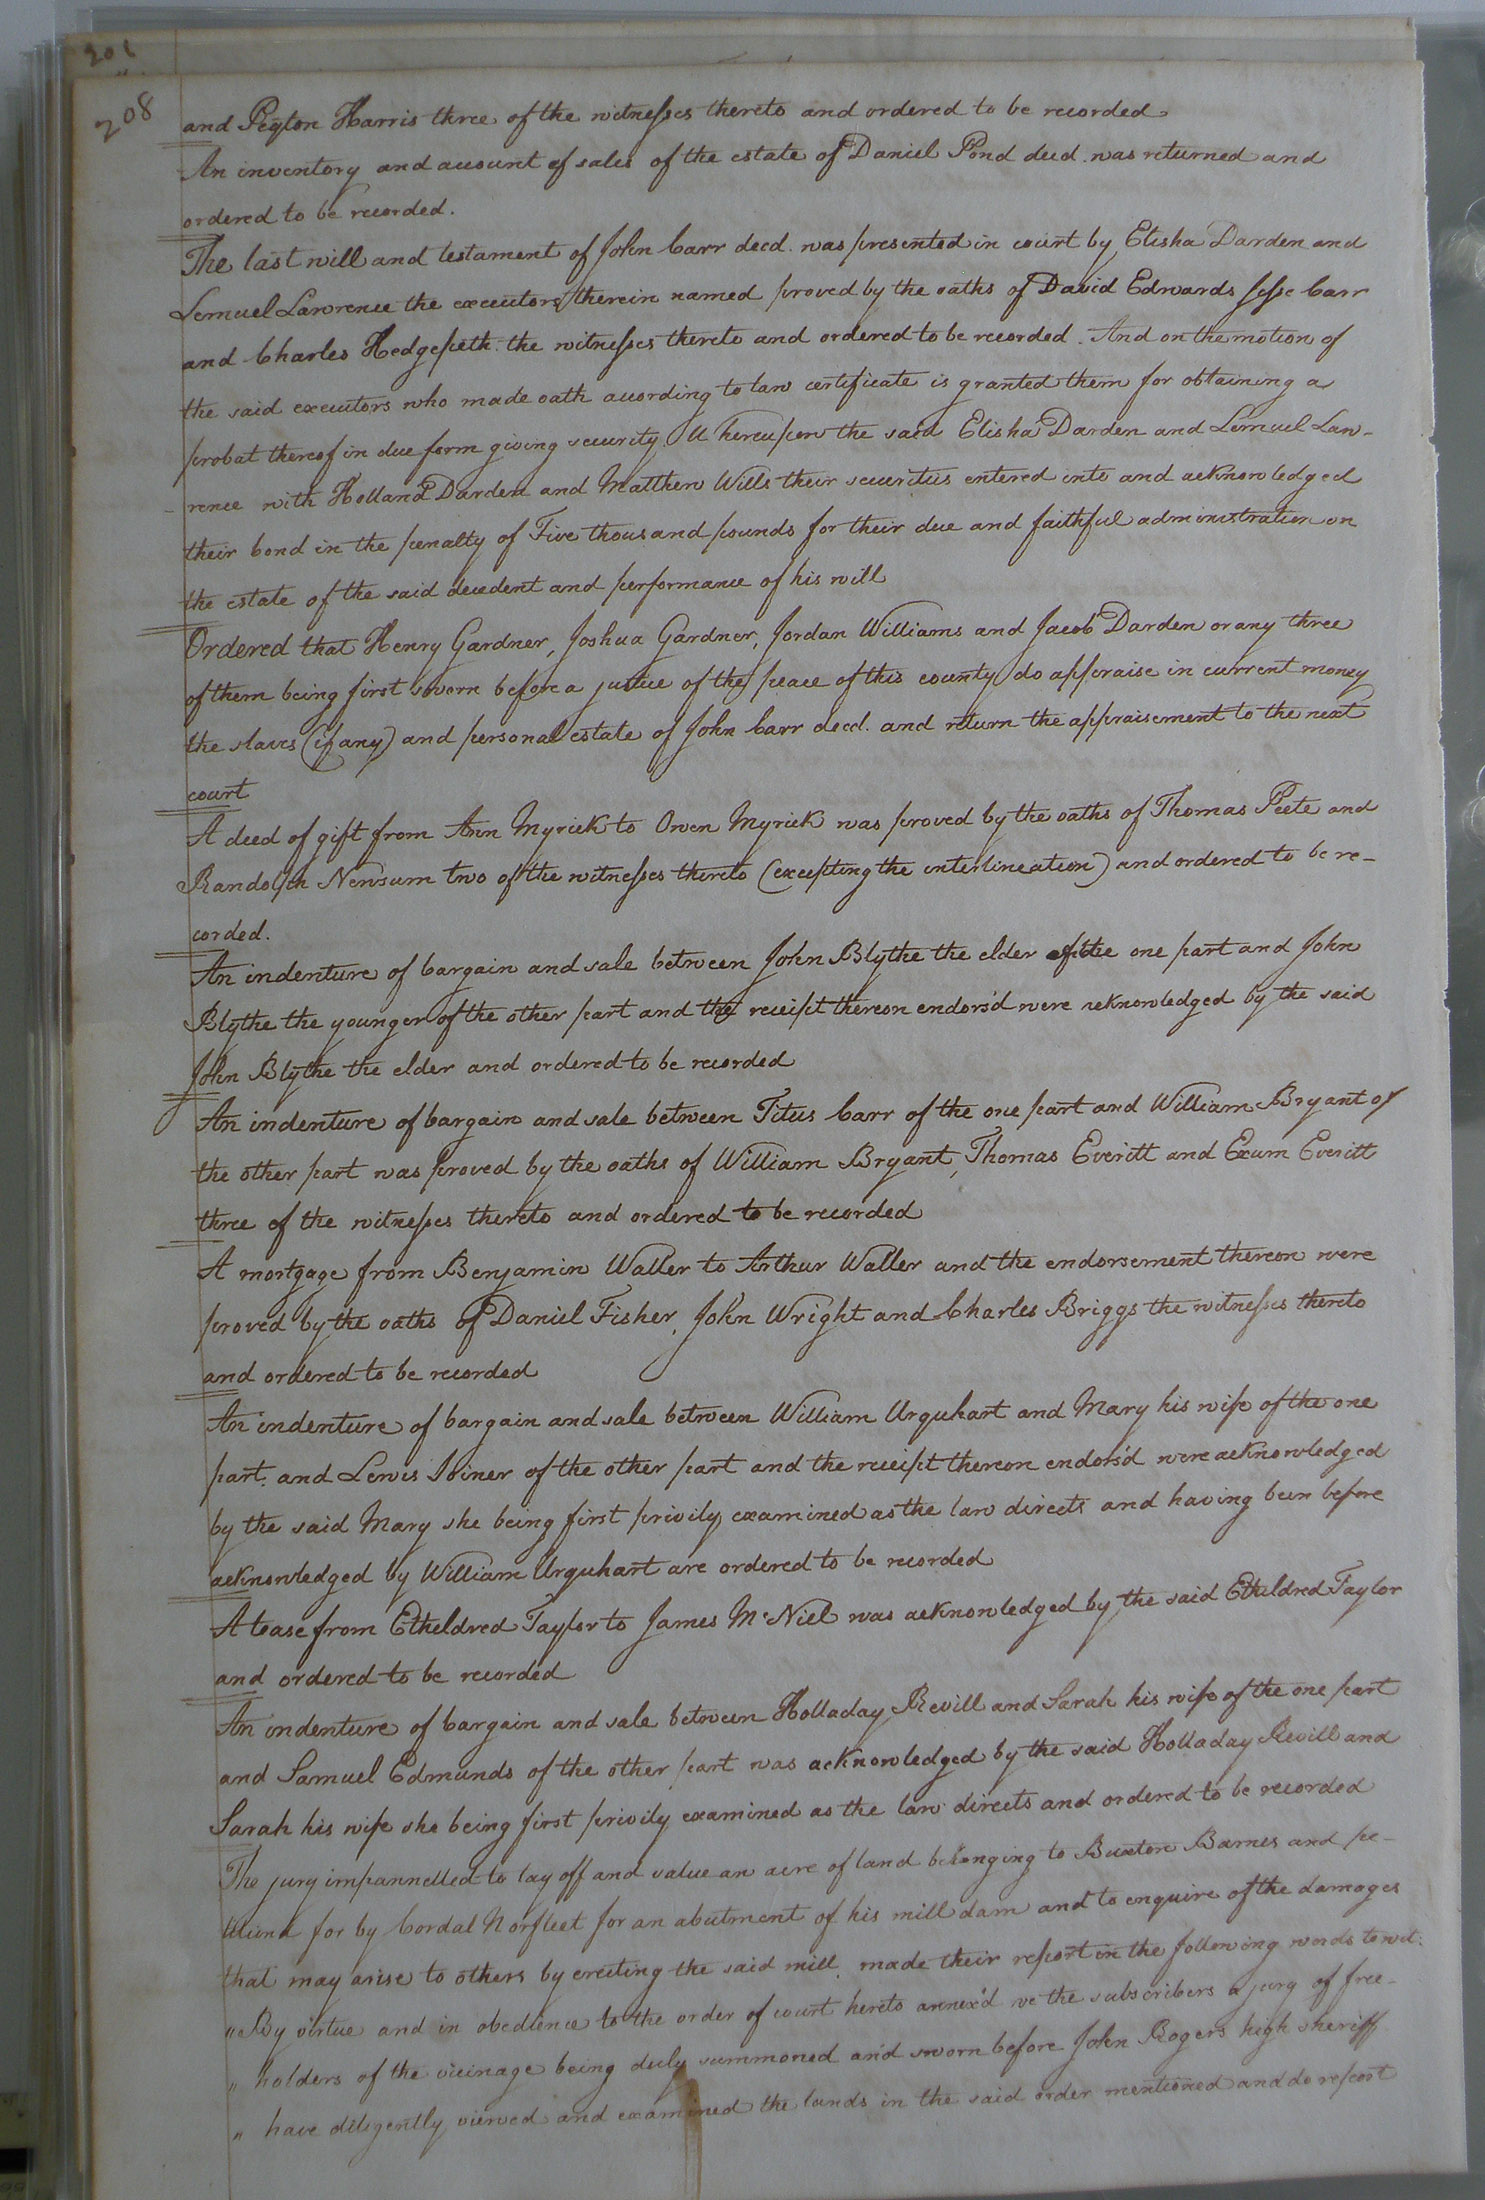 201
208
and Peyton Harris three of the witnesses thereto and ordered to be recorded
An inventory and account of sales of the estate of Daniel Pond decd. was returned and
ordered to be recorded.
The last will and testament of John Carr decd. was presented in court by Elisha Darden and
Lemuel Lawrence the executors therein named proved by the oaths of David Edwards Jesse Carr
and Charles Hedgepeth the witnesses thereto and ordered to be recorded. And on the motion of
the said executors who made oath according to law certificate is granted them for obtaining a
probat thereof in due form giving security Whereupon the said Elisha Darden and Lemuel Law-
-rence with Holland Darden and Matthew Wills their securities entered into and acknowledged
their bond in the penalty of Five thousand pounds for their due and faithful administration on
the estate of the said decedent and performance of his will
Ordered that Henry Gardner, Joshua Gardner, Jordan Williams and Jacob Darden or any three
of them being first sworn before a justice of the peace of this county do appraise in current money
the slaves (if any) and personal estate of John Carr decd. and return the appraisement to the next
court
A deed of gift from Ann Myrick to Owen Myrick was proved by the oaths of Thomas Peete and
Randolph Newsum two of the witnesses thereto (excepting the interlineation) and ordered to be re-
corded.
An indenture of bargain and sale between John Blythe the elder of the one part and John
Blythe the younger of the other part and the receipt thereon endors'd were acknowledged by the said
John Blythe the elder and ordered to be recorded
An indenture of bargain and sale between Titus Carr of the one part and William Bryant of
the other part was proved by the oaths of William Bryant, Thomas Everitt and Exum Everitt
three of the witnesses thereto and ordered to be recorded
A mortgage from Benjamin Waller to Arthur Waller and the endorsement thereon were
proved by the oaths of Daniel Fisher, John Wright and Charles Briggs the witnesses thereto
and ordered to be recorded
An indenture of bargain and sale between William Urquhart and Mary his wife of the one
part. and Lewis Joiner of the other part and the receipt thereon endors'd were acknowledged
by the said Mary she being first privily examined as the law directs and having been before
acknowledged by William Urquhart are ordered to be recorded
A lease from Etheldred Taylor to James McNiel was acknowledged by the said Etheldred Taylor
and ordered to be recorded
An indenture of bargain and sale between Holladay Revill and Sarah his wife of the one part
and Samuel Edmunds of the other part was acknowledged by the said Holladay Revill and
Sarah his wife she being first privily examined as the law directs and ordered to be recorded
The jury impannelled to lay off and value an acre of land belonging to Buxton Barnes and pe-
titiond for by Cordal Norfleet for an abutment of his mill dam and to enquire of the damages
that may arise to others by erecting the said mill. made their report in the following words to wit:
"By virtue and in obedience to the order of court hereto annex'd we the subscribers a jury of free-
" holders of the vicinage being duly summoned and sworn before John Rogers high sheriff
" have diligently viewed and examined the lands in the said order mentioned and do report